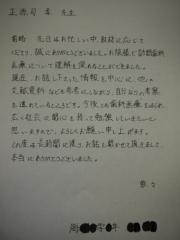 正 赤司 孝 先生
前略 先日はお忙しい中、取材に応じて
くださり、誠にありがとうございました。お陰様で訪問歯科
医療について理解を深めることができました。
現在、お話し下さった情報を中心に、他の
文献資料なども参考にしながら、自分なりの考察
を進めているところです。今後とも歯科医療をはじめ、
広く社会に関心を持って勉強していきたいと
思いますので、よろしくお願い申し上げます。
この度は長時間に渡り、お話を聞かせて頂きまして、
本当にありがとうございました。
草々